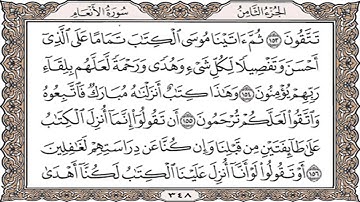 الجزء الثامن
سورة الأنعام
تَتَّقُونَ ۝١٥٣ ثُمَّ ءَاتَيْنَا مُوسَى ٱلْكِتَٰبَ تَمَامًا عَلَى ٱلَّذِىٓ
أَحْسَنَ وَتَفْصِيلًا لِّكُلِّ شَىْءٍ وَهُدًى وَرَحْمَةً لَّعَلَّهُم بِلِقَآءِ
رَبِّهِمْ يُؤْمِنُونَ ۝١٥٤ وَهَٰذَا كِتَٰبٌ أَنزَلْنَٰهُ مُبَارَكٌ فَٱتَّبِعُوهُ
وَٱتَّقُوا۟ لَعَلَّكُمْ تُرْحَمُونَ ۝١٥٥ أَن تَقُولُوٓا۟ إِنَّمَآ أُنزِلَ ٱلْكِتَٰبُ
عَلَىٰ طَآئِفَتَيْنِ مِن قَبْلِنَا وَإِن كُنَّا عَن دِرَاسَتِهِمْ لَغَٰفِلِينَ
۝١٥٦ أَوْ تَقُولُوا۟ لَوْ أَنَّآ أُنزِلَ عَلَيْنَا ٱلْكِتَٰبُ لَكُنَّآ أَهْدَىٰ
٣٤٨